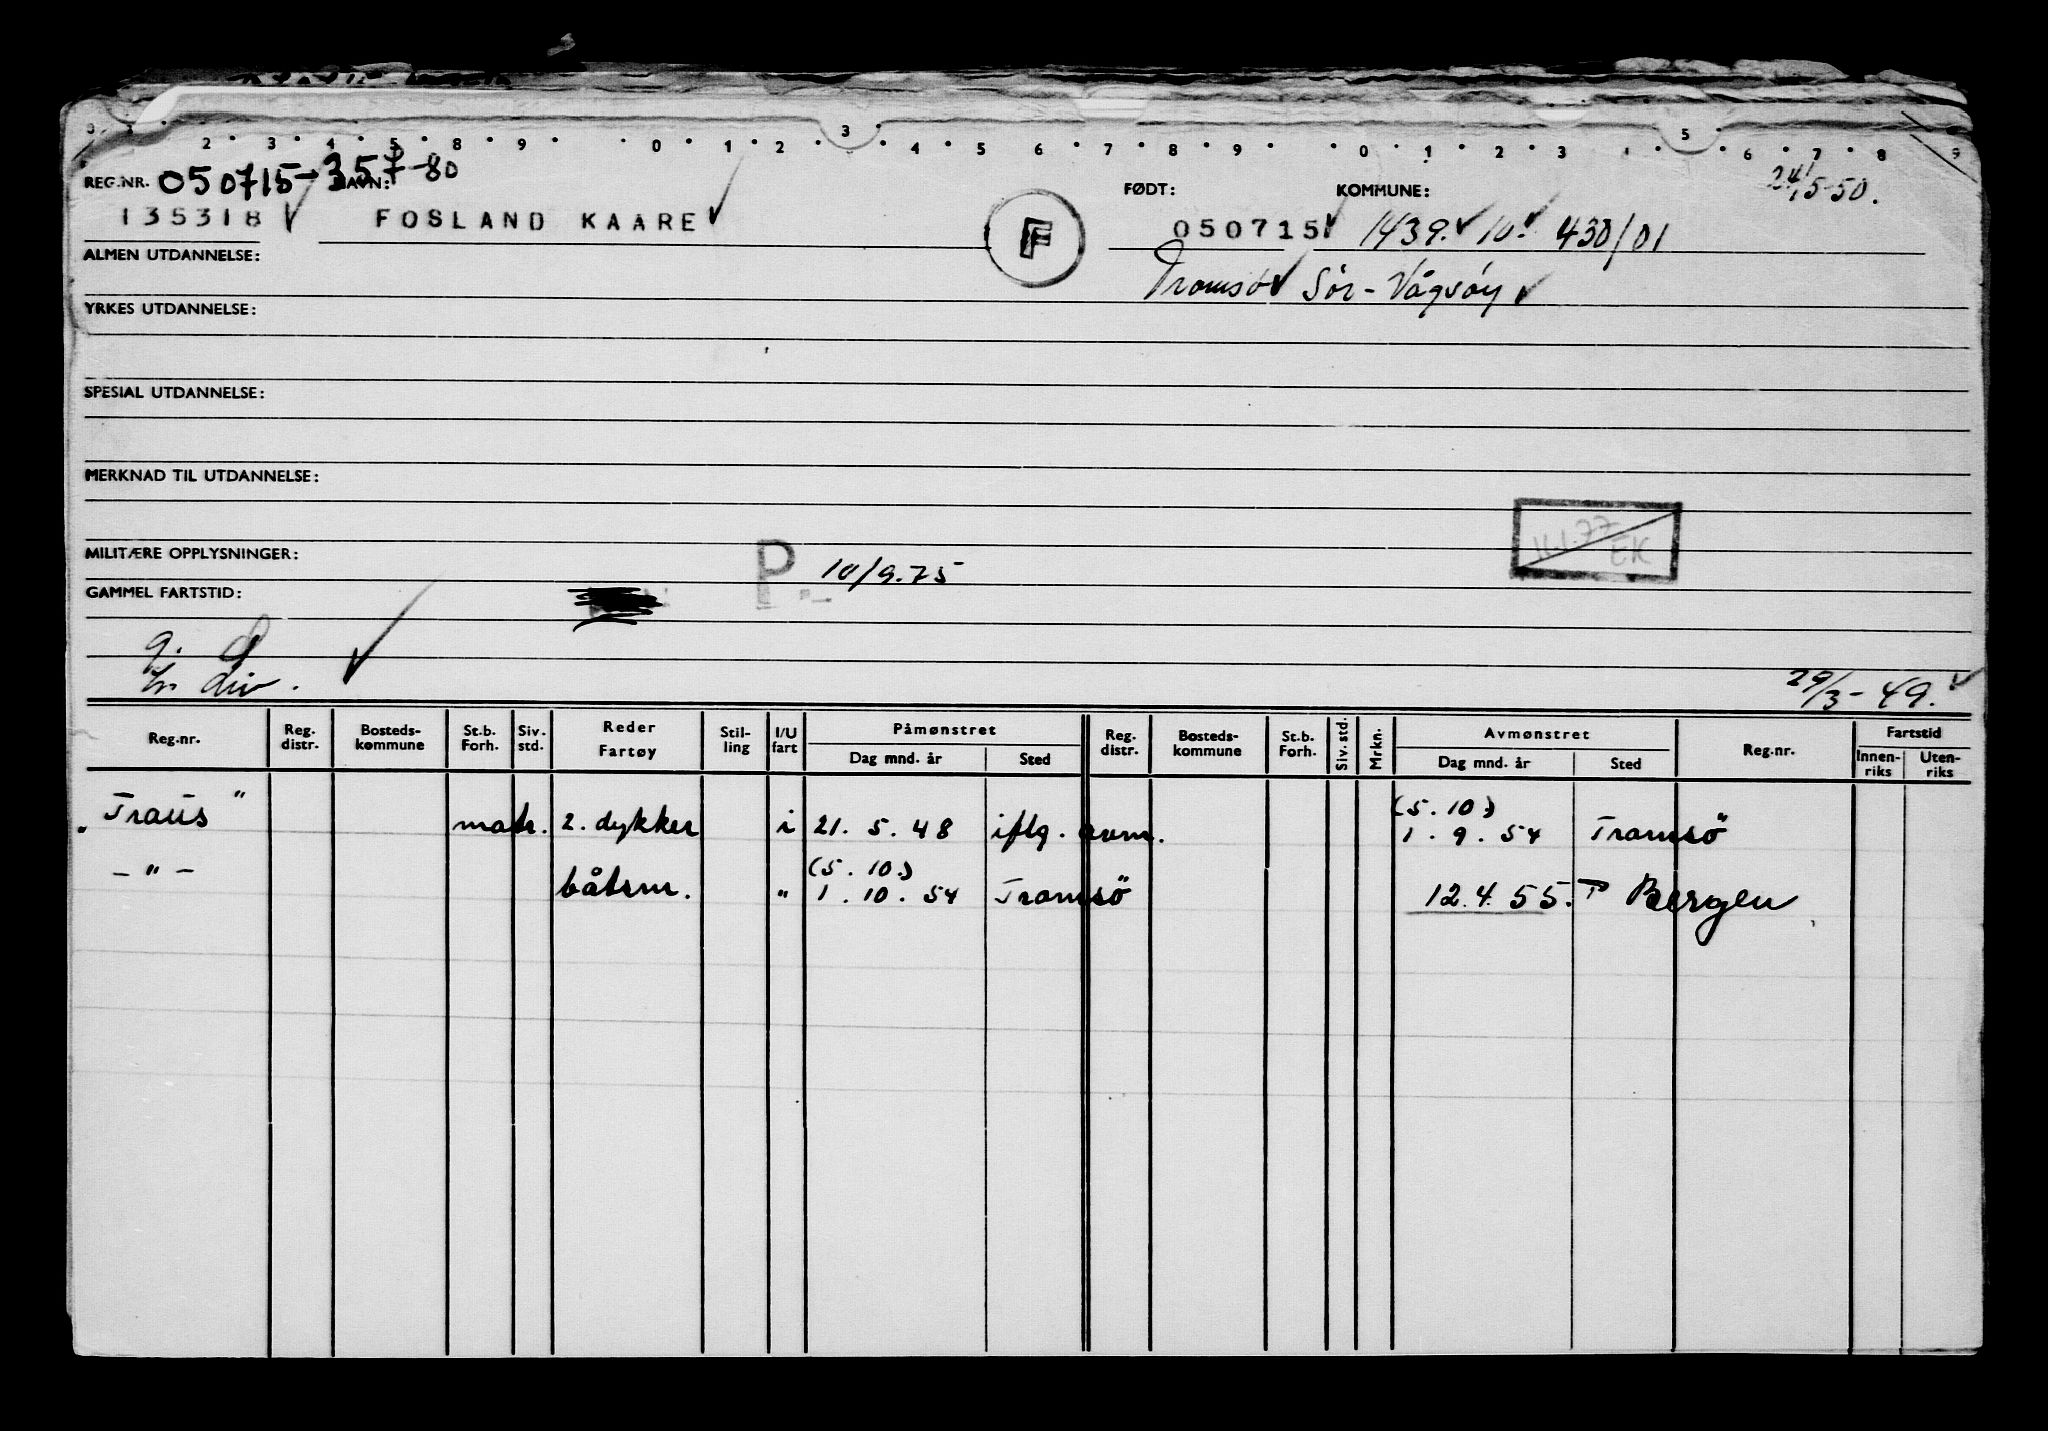 2 3 4 5 8 9 0 1 2 3 4 5 6 7 8 9 0 1 2 3 4 5 6 7 8 9
REG.NR. 050715-357-80 NAVN: FØDT: KOMMUNE: 24/5-50.
135318 FOSLAND KAARE F 050715 1439. 10. 430/01
ALMEN UTDANNELSE: Tromsø Sör-Vågsöy
YRKES UTDANNELSE:
SPESIAL UTDANNELSE:
MERKNAD TIL UTDANNELSE:
11.1.77 EK
MILITÆRE OPPLYSNINGER: P. 10/9.75
GAMMEL FARTSTID:
29/3-49.
Reg.nr. Reg. distr. Bosteds-kommune St.b. Forh. Siv. std. Reder Fartøy Stil-ling I/U fart Påmønstret Dag mnd. år Sted Reg. distr. Bosteds-kommune St.b. Forh. Siv. std. Mrkn. Avmønstret Dag mnd. år Sted Reg.nr. Fartstid Innen-riks Uten-riks
(5.10.)
"Traus" matr. 2. dykker i 21.5.48 iflg. avm. 1.9.54 Tromsö
(5.10.)
-"- båtsm. " 1.10.54 Tromsö 12.4.55. Bergen